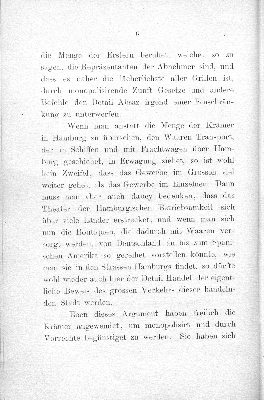 6
die Menge der Erstern beruhet, welche, so zu
sagen, die Repräsentanten der Abnehmer sind, und
dass es daher die lächerlichste aller Grillen ist,
durch monopolisirende Zunft Gesetze und andere
Befehle den Detail Absaz irgend einer Einschrän-
kung zu unterwerfen.
Wenn man anstatt die Menge der Krämer
in Hamburg zu anatomen, den Waaren Transport,
der in Schiffen und mit Frachtwagen über Ham-
burg geschiehet, in Erwägung ziehet, so ist wohl
kein Zweifel, dass das Gewerbe im Grossen viel
weiter gehet, als das Gewerbe im Einzelnen. Dann
muss man aber auch bedenken, dass das
Theater der Hamburgischen Betriebsamkeit sich
über viele Länder erstrecket, und wenn man sich
nun die Boutiquen, die dadurch mit Waaren ver-
sorgt werden, von Deutschland an bis zum Spani-
schen Amerika so gereihet vorstellen könnte, wie
man sie in den Strassen Hamburgs findet, so dürfte
wohl wieder auch hier der Detail Handel der eigent-
liche Beweis des grossen Verkehrs dieser handeln-
den Stadt werden.
Eben dieses Argument haben freilich die
Krämer angewendet, um monopolisirt und durch
Vorrechte begünstiget zu werden. Sie haben sich